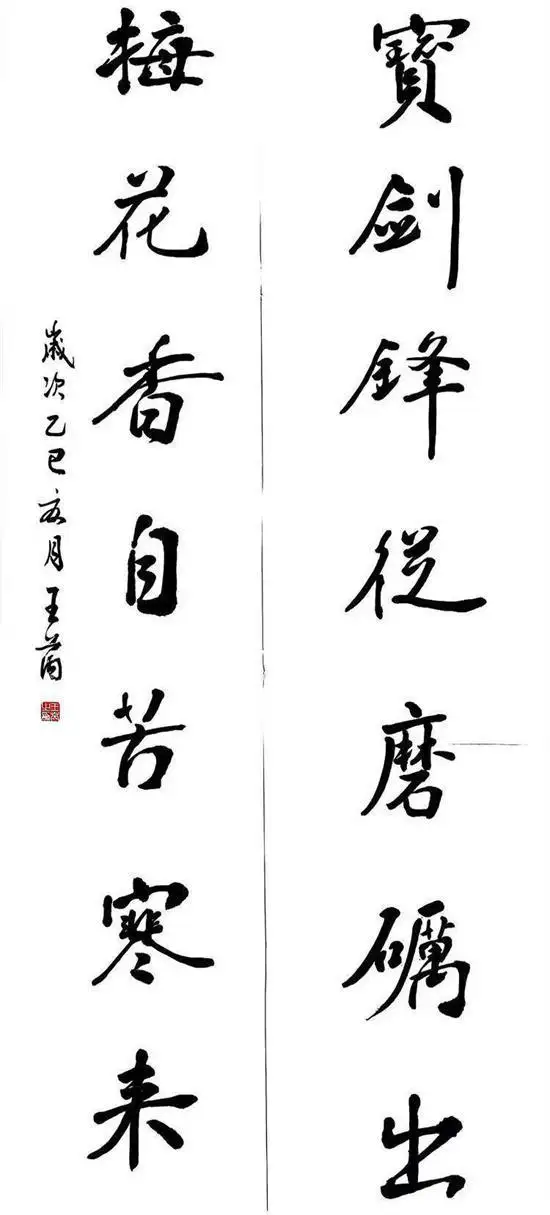 寶劍鋒從磨礪出
梅花香自苦寒来
歲次乙巳亥月王